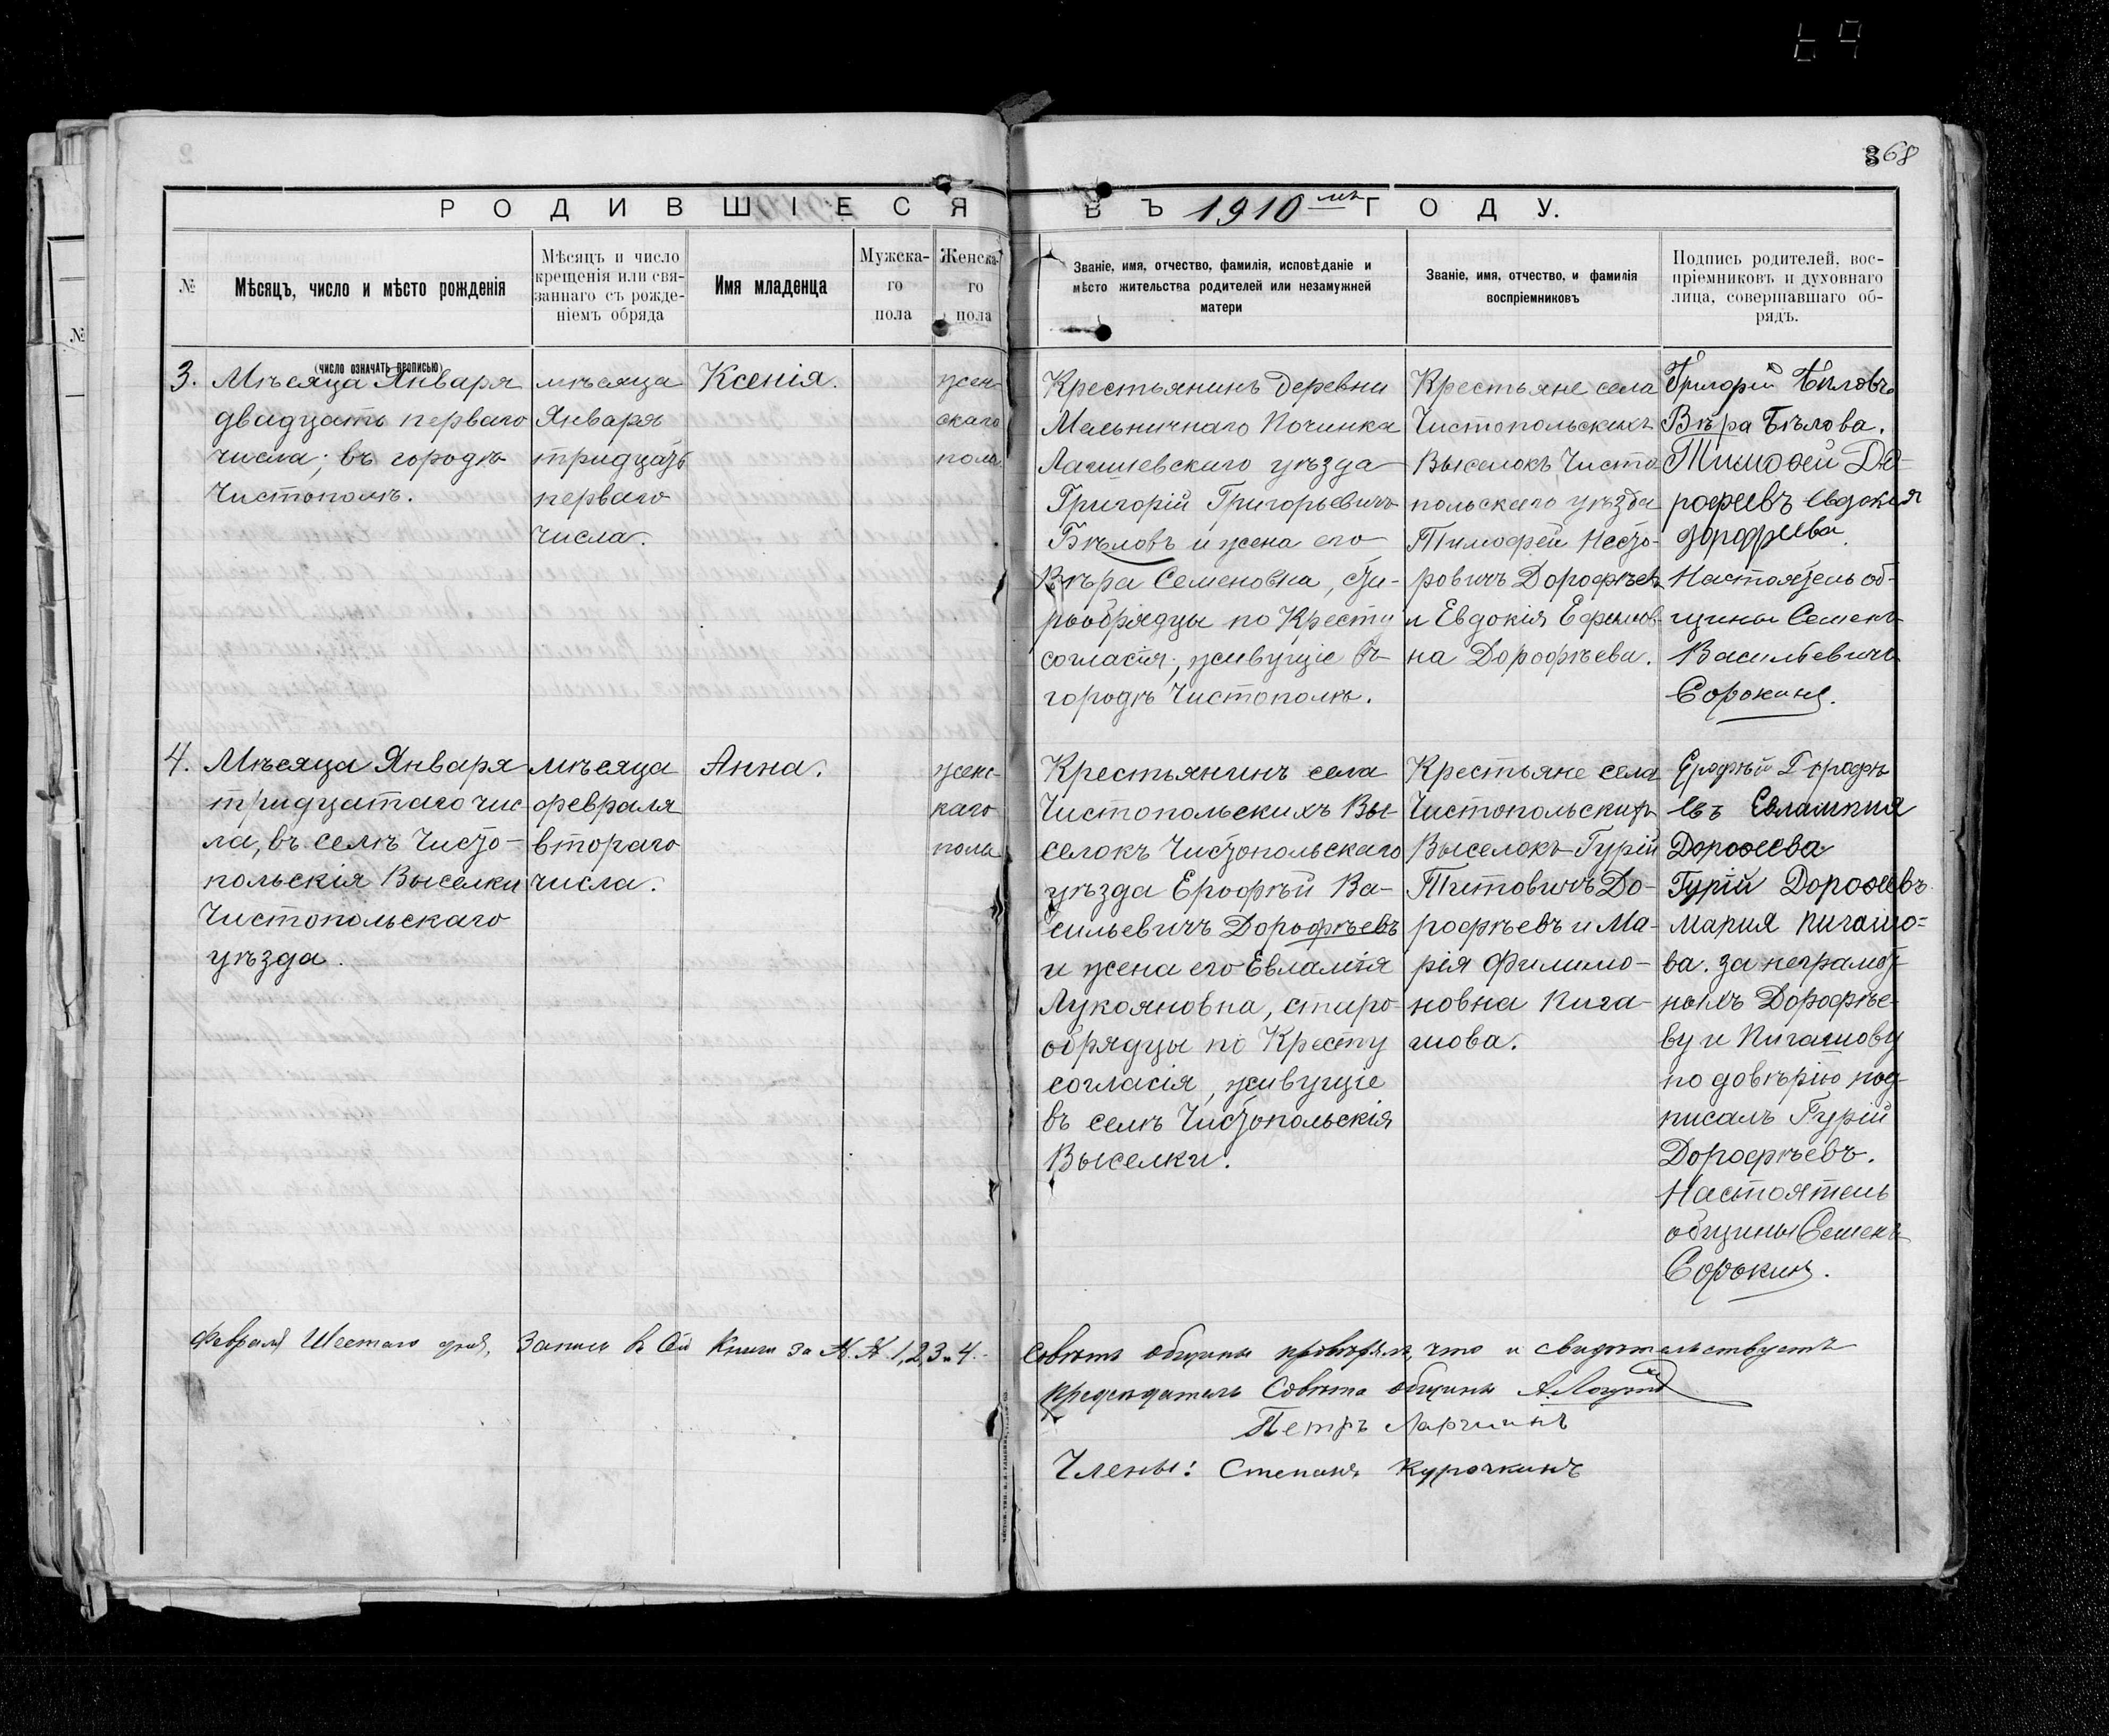 368
РОДИВШІЕСЯ ВЪ 1910 мъ ГОДУ.
№
Мѣсяцъ, число и мѣсто рожденія
Мѣсяцъ и число
крещенія или свя-
заннаго съ рожде-
ніемъ обряда
Имя младенца
Мужска-
го
пола
Женска-
го
пола
Званіе, имя, отчество, фамилія, исповѣданіе и
мѣсто жительства родителей или незамужней
матери
Званіе, имя, отчество, и фамилія
воспріемниковъ
Подпись родителей, вос-
пріемниковъ и духовнаго
лица, совершавшаго об-
рядъ.
(число означать прописью)
3.
Мѣсяца Января
двадцать перваго
числа; въ городѣ
Чистополѣ.
мѣсяца
Января
тридцать
перваго
числа.
Ксенія.
жен-
скаго
пола.
Крестьянинъ деревни
Мельничнаго Починка
Лаишевскаго уѣзда
Григорій Григорьевичъ
Бѣловъ и жена его
Вѣра Семеновна, ста-
рообрядцы по Кресту
согласія, живущіе въ
городѣ Чистополѣ.
Крестьяне села
Чистопольскихъ
Выселокъ Чисто
польскаго уѣзда
Тимофей Несто-
ровичъ Дорофѣевъ
и Евдокія Ефимов-
на Дорофѣева.
Григорій Бѣловъ
Вѣра Бѣлова.
Тимофей До-
рофеевъ Евдокия
дорофеева.
Настоятель об-
щины Семенъ
Васильевичъ
Сорокинъ.
4.
Мѣсяца Января
тридцатаго чис
ла, въ селѣ Чисто-
польскія Выселки
Чистопольскаго
уѣзда.
мѣсяца
февраля
втораго
числа.
Анна.
женс-
каго
пола
Крестьянинъ села
Чистопольскихъ Вы-
селокъ Чистопольскаго
уѣзда Ерофѣй Ва-
сильевичъ Дорофѣевъ
и жена его Евлампія
Лукояновна, старо-
обрядцы по Кресту
согласія, живущіе
въ селѣ Чистопольскія
Выселки.
Крестьяне села
Чистопольскихъ
Выселокъ Гурій
Титовичъ До-
рофѣевъ и Ма-
рія Филимо-
новна Пига-
шова.
Ерофѣй Дорофѣ
евъ Евлампия
Дорофеева
Гурій Дорофеевъ
мария пигашо-
ва. за неграмот-
ныхъ Дорофѣе-
ву и Пигашову
по довѣрію под-
писалъ Гурій
Дорофѣевъ.
Настоятель
общины Семенъ
Сорокинъ.
Февраля Шестаго дня, Запись в сей Книги за №.№. 1,2,3 и 4.
Совѣтъ общины провѣрялъ, что и свидѣтельствуетъ
Предсѣдатель Совѣта общины
Петръ
Члены: Степанъ Курочкинъ